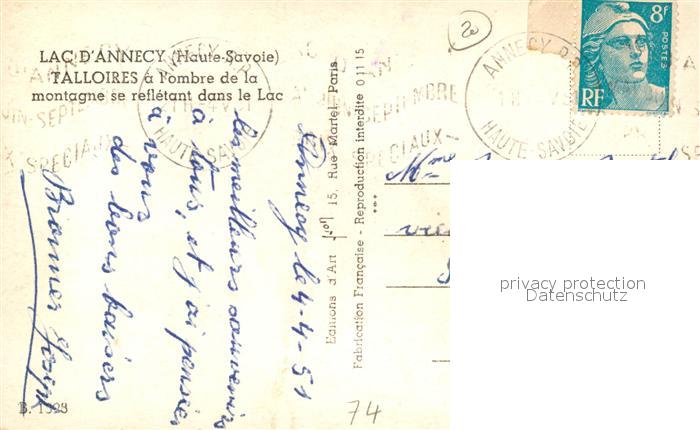 LAC D'ANNECY (Haute-Savoie)
TALLOIRES à l'ombre de la
montagne se reflétant dans le Lac
Annecy le 4-4-51
les meilleurs souvenirs
à tous, et j'ai pensée
à vous
des bons baisers
Joseph
B. 1323
Editions d'Art Yvon 15, Rue Martel, Paris
Fabrication Française - Reproduction interdite 01115
20
ANNECY
HAUTE-SAVOIE
ANNECY
HAUTE-SAVOIE
SEPTEMBRE
SPECIAUX
8f
POSTES
RF
Mme
74
privacy protection
Datenschutz